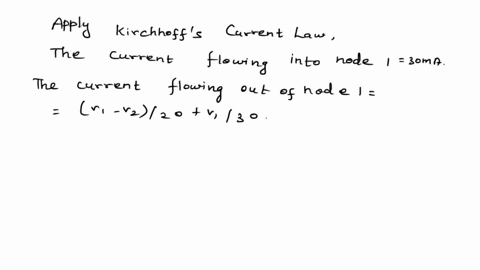 Apply Kirchhoff's Current Law,
The current flowing into node 1 = 30mA.
The current flowing out of node 1 =
= (v₁ - v₂)/20 + v₁/30.